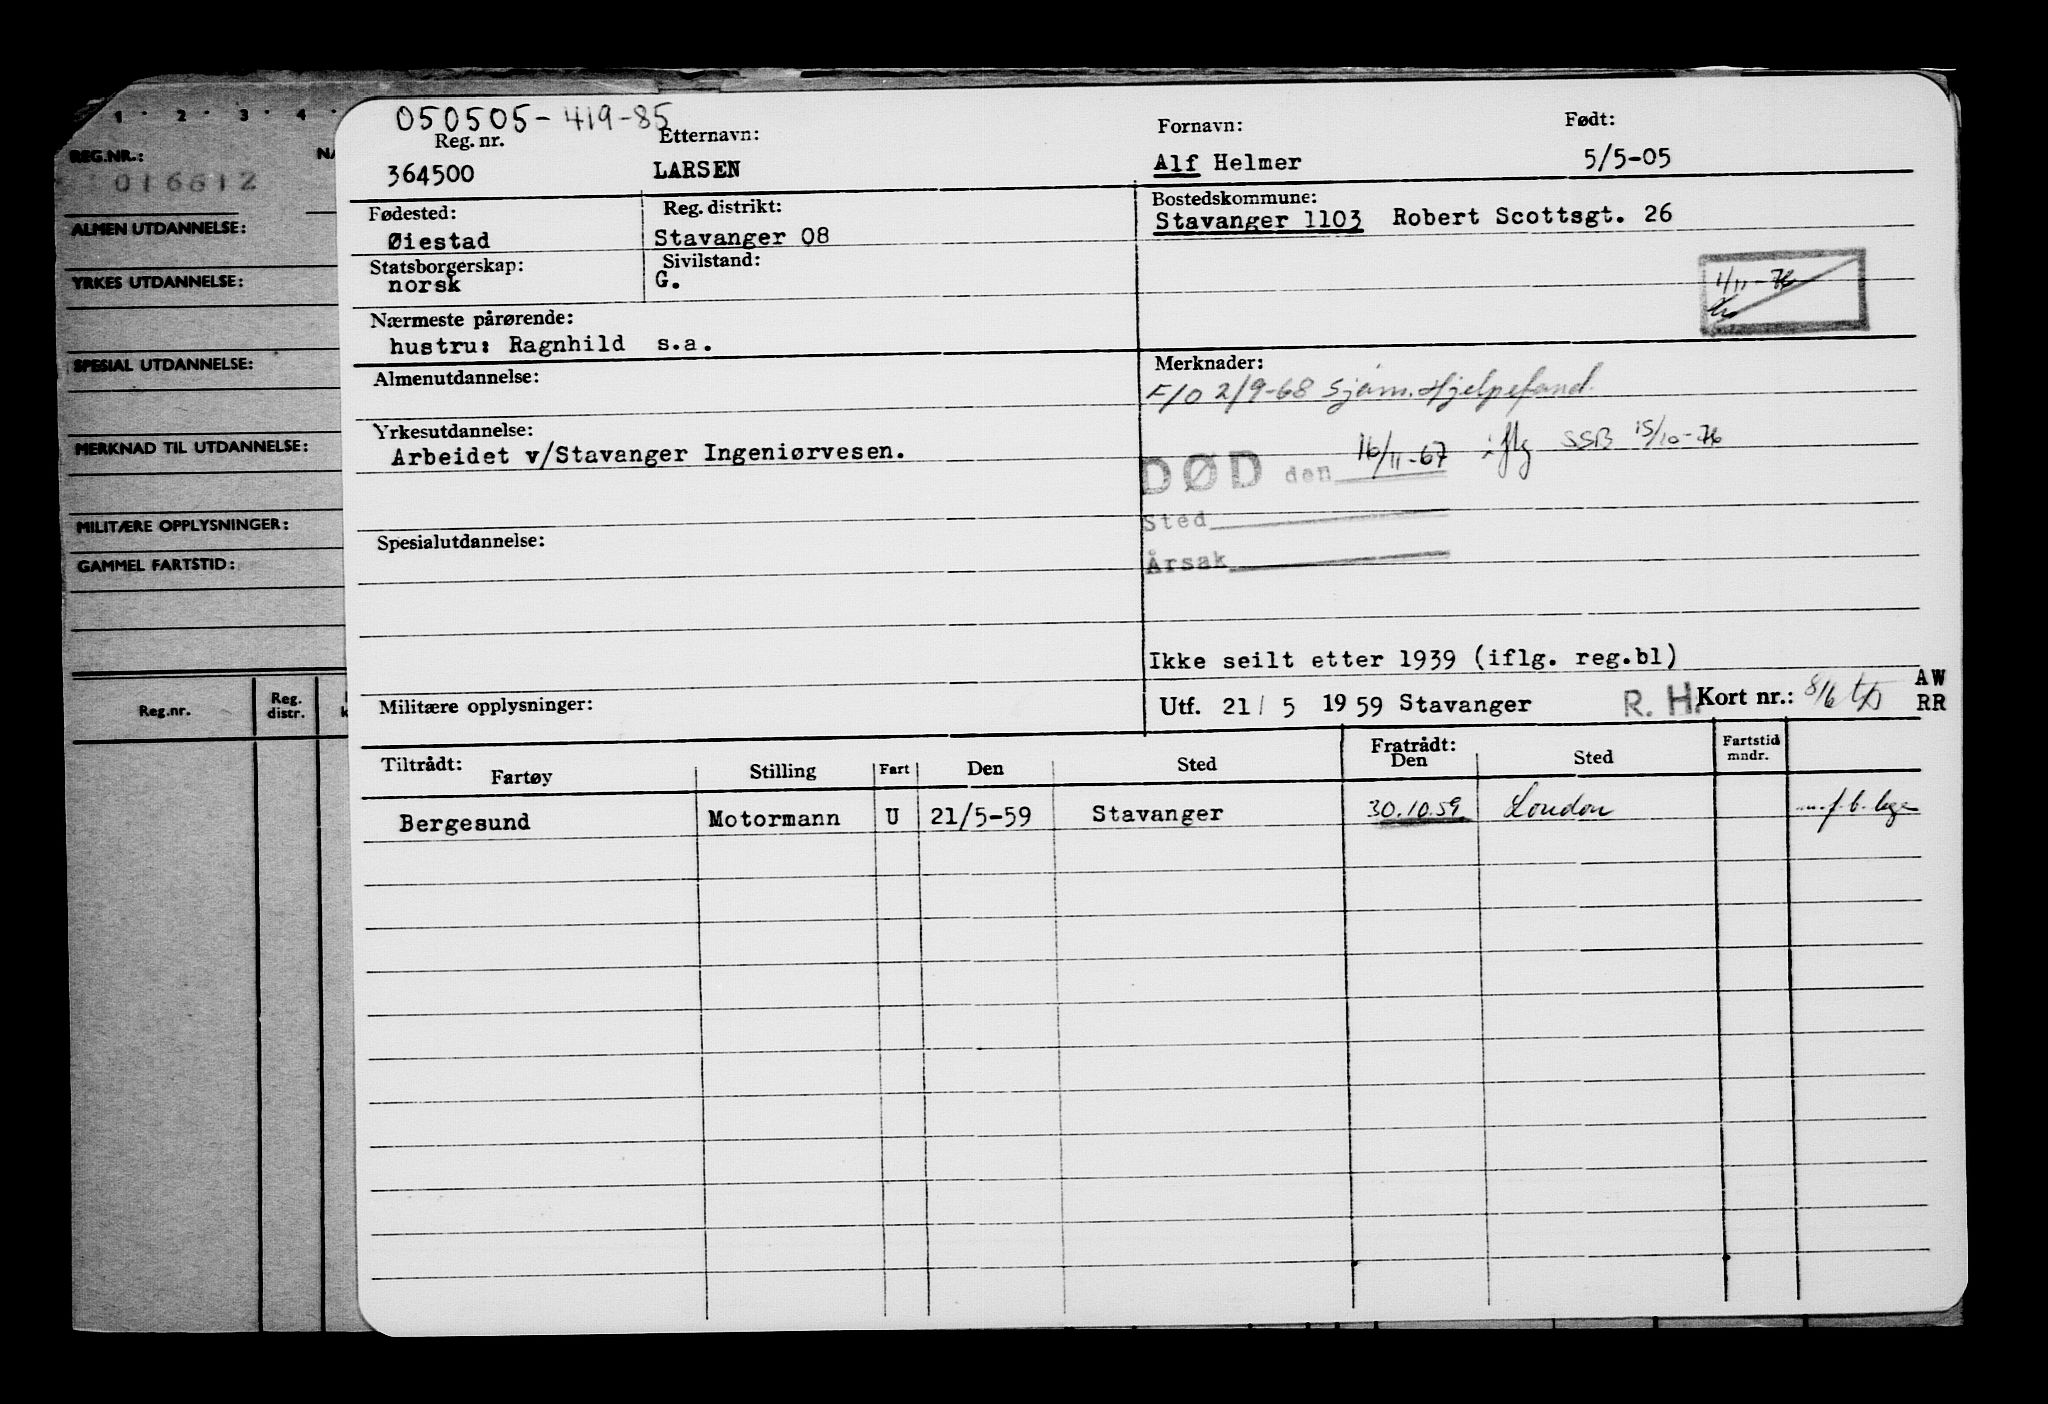 1 · 2 · 3 · 4 ·
REG.NR.:
016612
ALMEN UTDANNELSE:
YRKES UTDANNELSE:
SPESIAL UTDANNELSE:
MERKNAD TIL UTDANNELSE:
MILITÆRE OPPLYSNINGER:
GAMMEL FARTSTID:
Reg.nr. Reg. distr.
050505-419-85
Reg. nr. Etternavn: Fornavn: Født:
364500 LARSEN Alf Helmer 5/5-05
Fødested: Reg. distrikt: Bostedskommune:
Øiestad Stavanger 08 Stavanger 1103 Robert Scottsgt. 26
Statsborgerskap: Sivilstand:
norsk G.
1/11-76
Nærmeste pårørende:
hustru: Ragnhild s.a.
Almenutdannelse: Merknader:
F/O 2/9-68 Sjøm. Hjelpefond.
Yrkesutdannelse:
Arbeidet v/Stavanger Ingeniørvesen.
DØD den 16/11-67 iflg SSB 15/10-76
Sted
Årsak
Spesialutdannelse:
Ikke seilt etter 1939 (iflg. reg.bl)
Militære opplysninger:
Utf. 21/ 5 1959 Stavanger R. H. Kort nr.: 8/6 AW
RR
Tiltrådt: Fratrådt:
Fartøy Stilling Fart Den Sted Den Sted Fartstid mndr.
Bergesund Motormann U 21/5-59 Stavanger 30.10.59 London